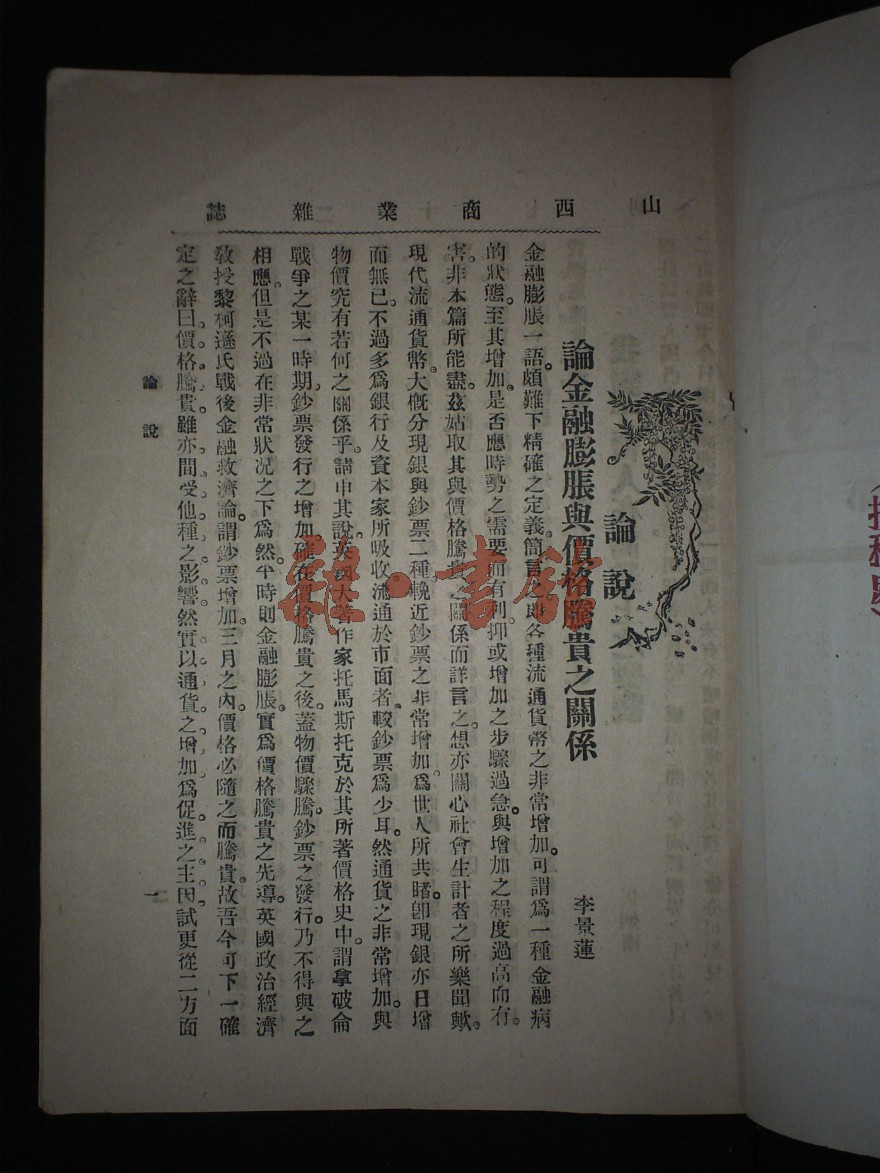 山西商業雜誌
論說
論金融膨脹與價格騰貴之關係
李景蓮
金融膨脹一語。頗難下精確之定義。簡言之。即各種流通貨幣之非常增加。可謂爲一種金融病
的狀態。至其增加。是否應時勢之需要而有利。抑或增加之步驟過急。與增加之程度過高而有。
害。非本篇所能盡。茲姑取其與價格騰貴之關係而詳言之。想亦關心社會生計者之所樂聞歟。
現代流通貨幣。大槪分現銀與鈔票二種。輓近鈔票之非常增加。爲世人所共睹。卽現銀亦日增
而無已。不過多爲銀行及資本家所吸收。流通於市面者。較鈔票爲少耳。然通貨之非常增加。與
物價究有若何之關係乎。請申其說。英國大著作家托馬斯托克於其所著價格史中。謂拿破侖
戰爭之某一時期。鈔票發行之增加。確在價格騰貴之後。蓋物價驟騰。鈔票之發行。乃不得與之
相應。但是不過在非常狀况之下爲然。平時則金融膨脹。實爲價格騰貴之先導。英國政治經濟
敎授黎柯遜氏戰後金融救濟論。謂鈔票增加。三月之內。價格必隨之而騰貴。故吾今可下一確
定之辭曰。價格騰貴。雖亦間受他種之影響。然實以通貨之增加爲促進之主因。試更從二方面
論說
一
雜·書館